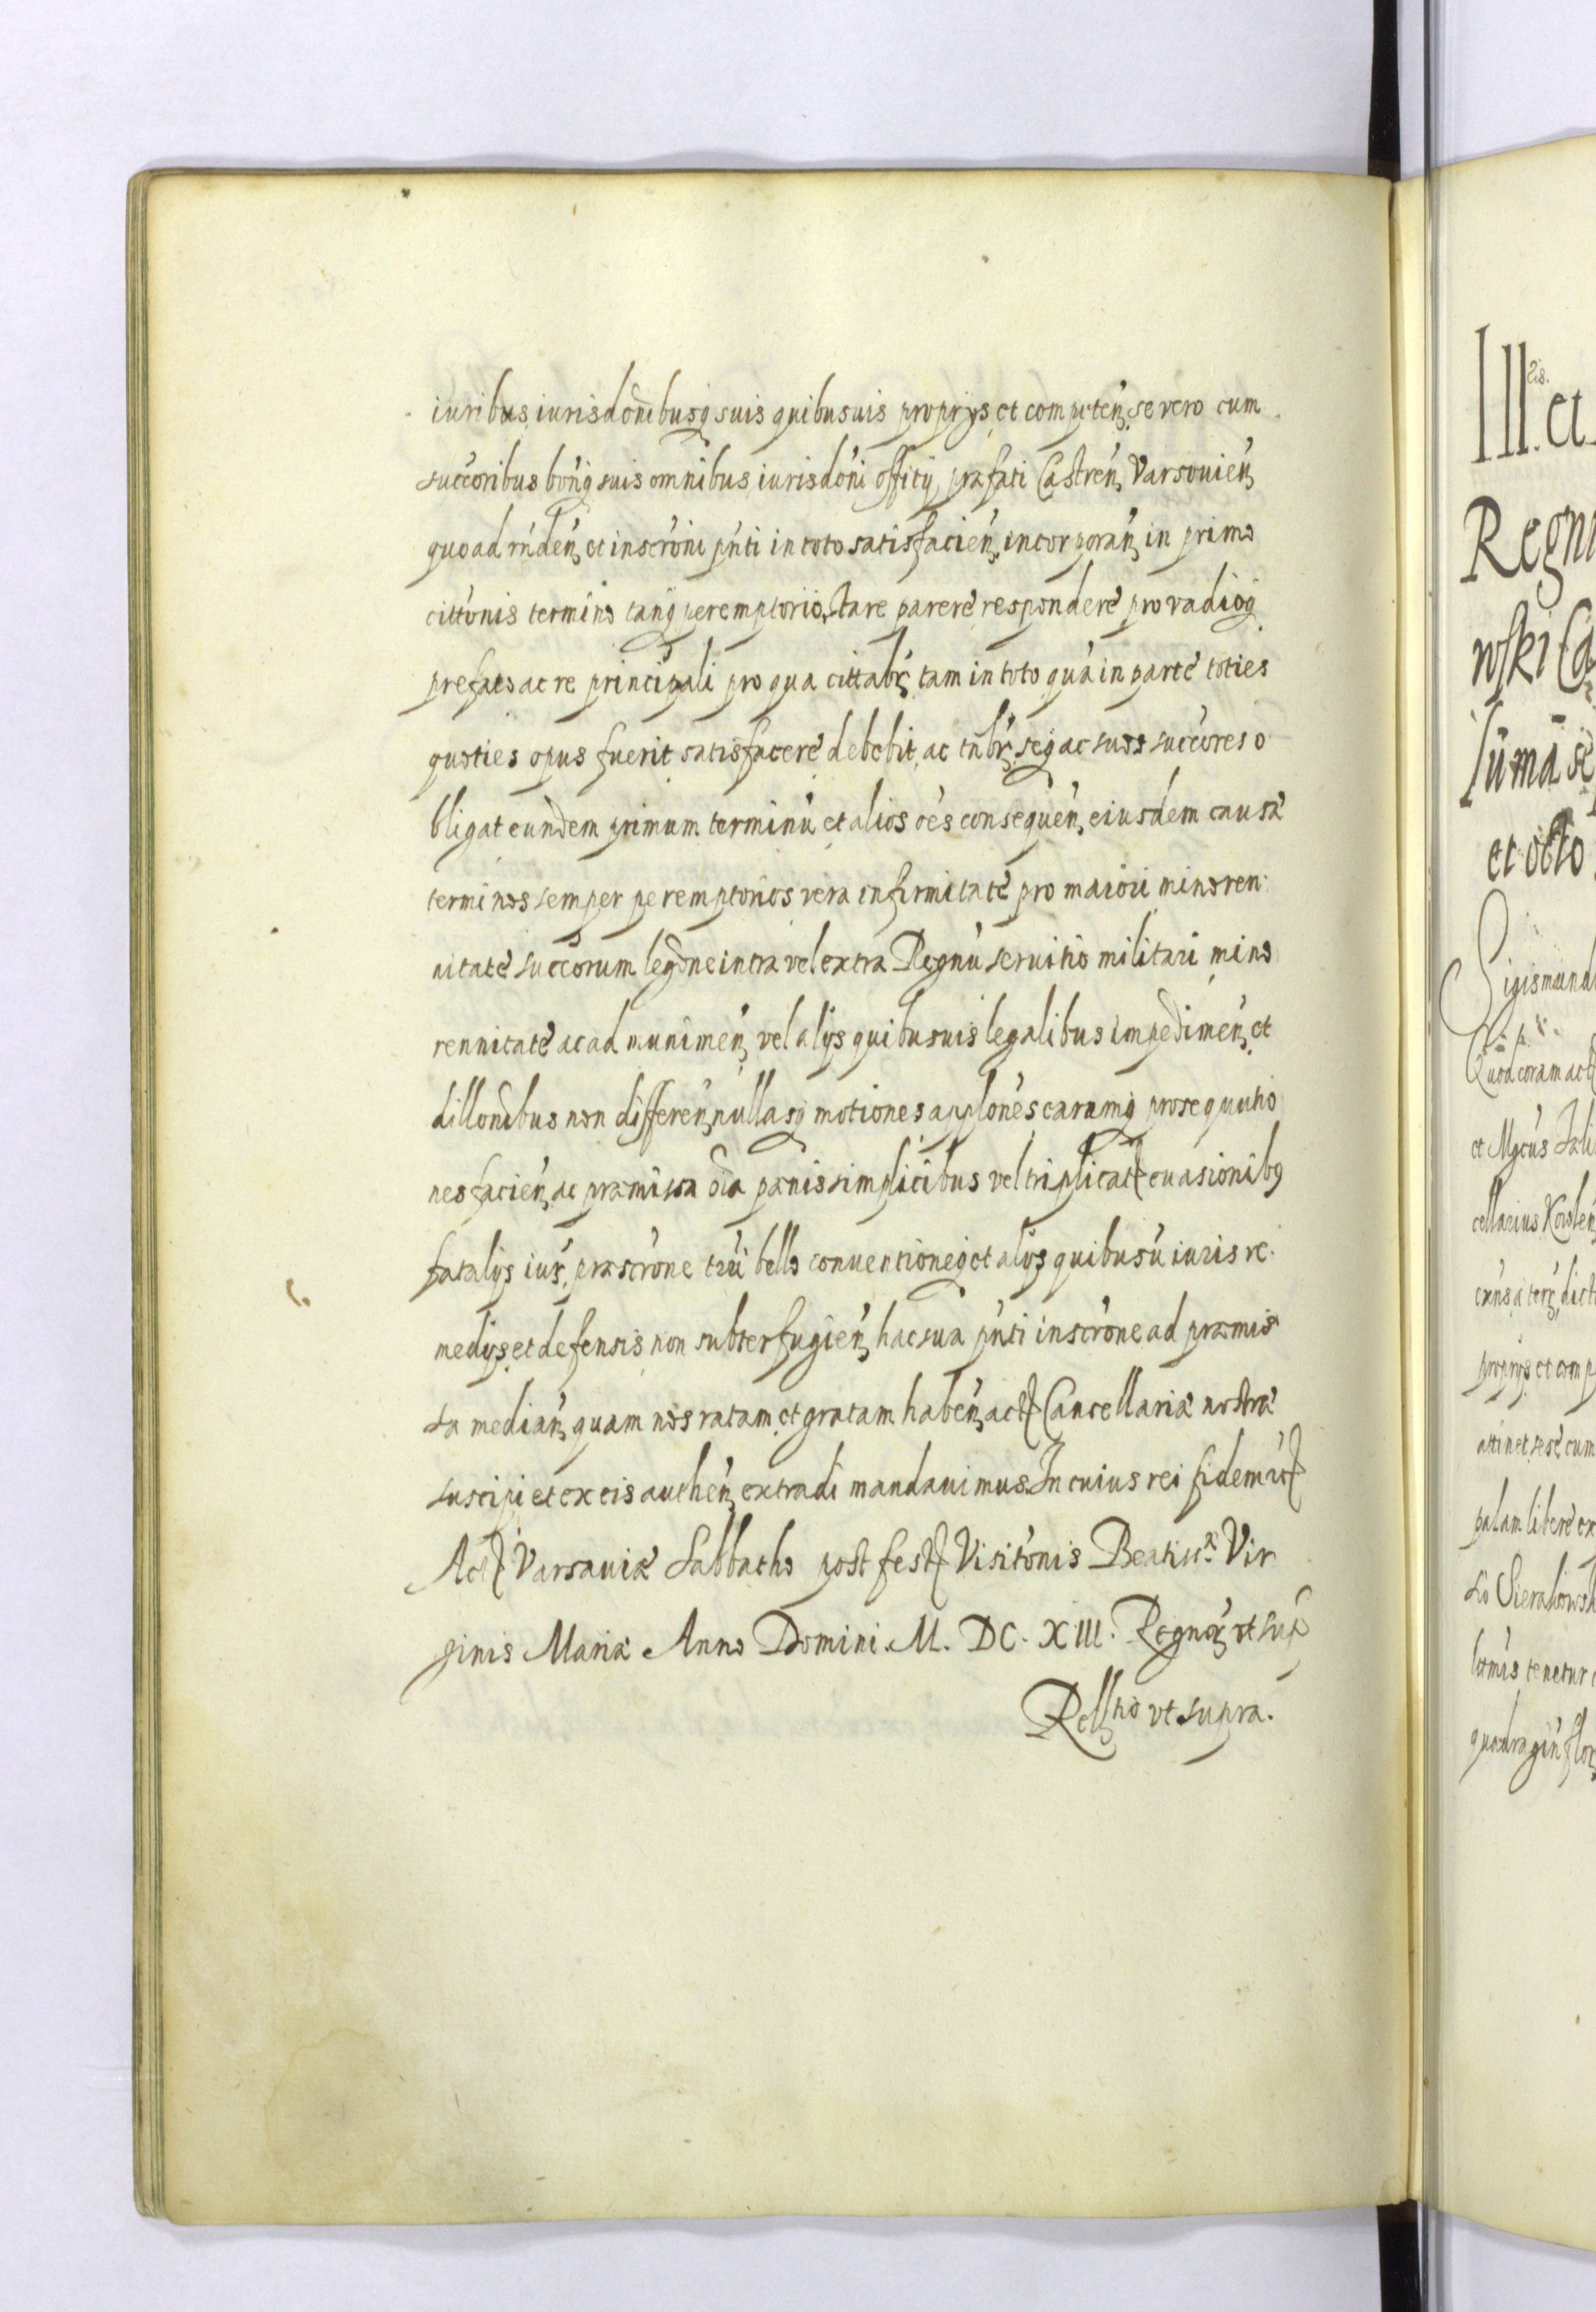 iuribus, iurisdonibusq suis quibusuis proprijs et competen, se vero cum
succoribus bonq suis omnibus iurisdoni offitij præfati Castren, Varsouien,
quo ad rnden, et inscroni pnti in toto satisfacien, incorporan, in primo
cittonis termino tanq peremptorio, stare parere respondere pro vadioq
prefato ac re principali pro qua cittabr, tam in toto qua in parte toties
quoties opus fuerit satisfacere debebit, ac tnbr, seq ac suos succores o
bligat eundem primum terminu et alios oes consequen, eiusdem causæ
terminos semper peremptorios vera infirmitate pro maiori minoren
nitate succorum legone intra vel extra Regnu seruitio militari mino
rennitate ac ad munimen, vel alijs quibusuis legalibus impedimen, et
dillonibus non differen, nullasq motiones applones earumq prosequutio
nes facien, ac præmissa oia pænis simplicibus vel triplicat euasionibq
fatalijs iur, præscrone trui bello conuentioneq et alijs quibusu iuris re
medijs et defensis non subterfugien, hac sua pnti inscrone ad præmis
sa median, quam nos ratam et gratam haben, act Cancellariæ nostræ
suscipi et ex eis authen, extradi mandauimus. In cuius rei fidem ict
Act Varsauiæ Sabbatho post fest Visitonis Beatissæ Vir
ginis Mariæ Anno Domini. M. DC. XIII. Regnor, vt sup
Rell, tio vt supra.
Ill. et
Regni
wski Ca
sumā se
et octo
Sigismund
Quod coram act
et Mgcus
cellarius
dict
proprijs et comp
attinet sese cum
palam libere
lo Sierakowsk
tenetur
quadragin flor,